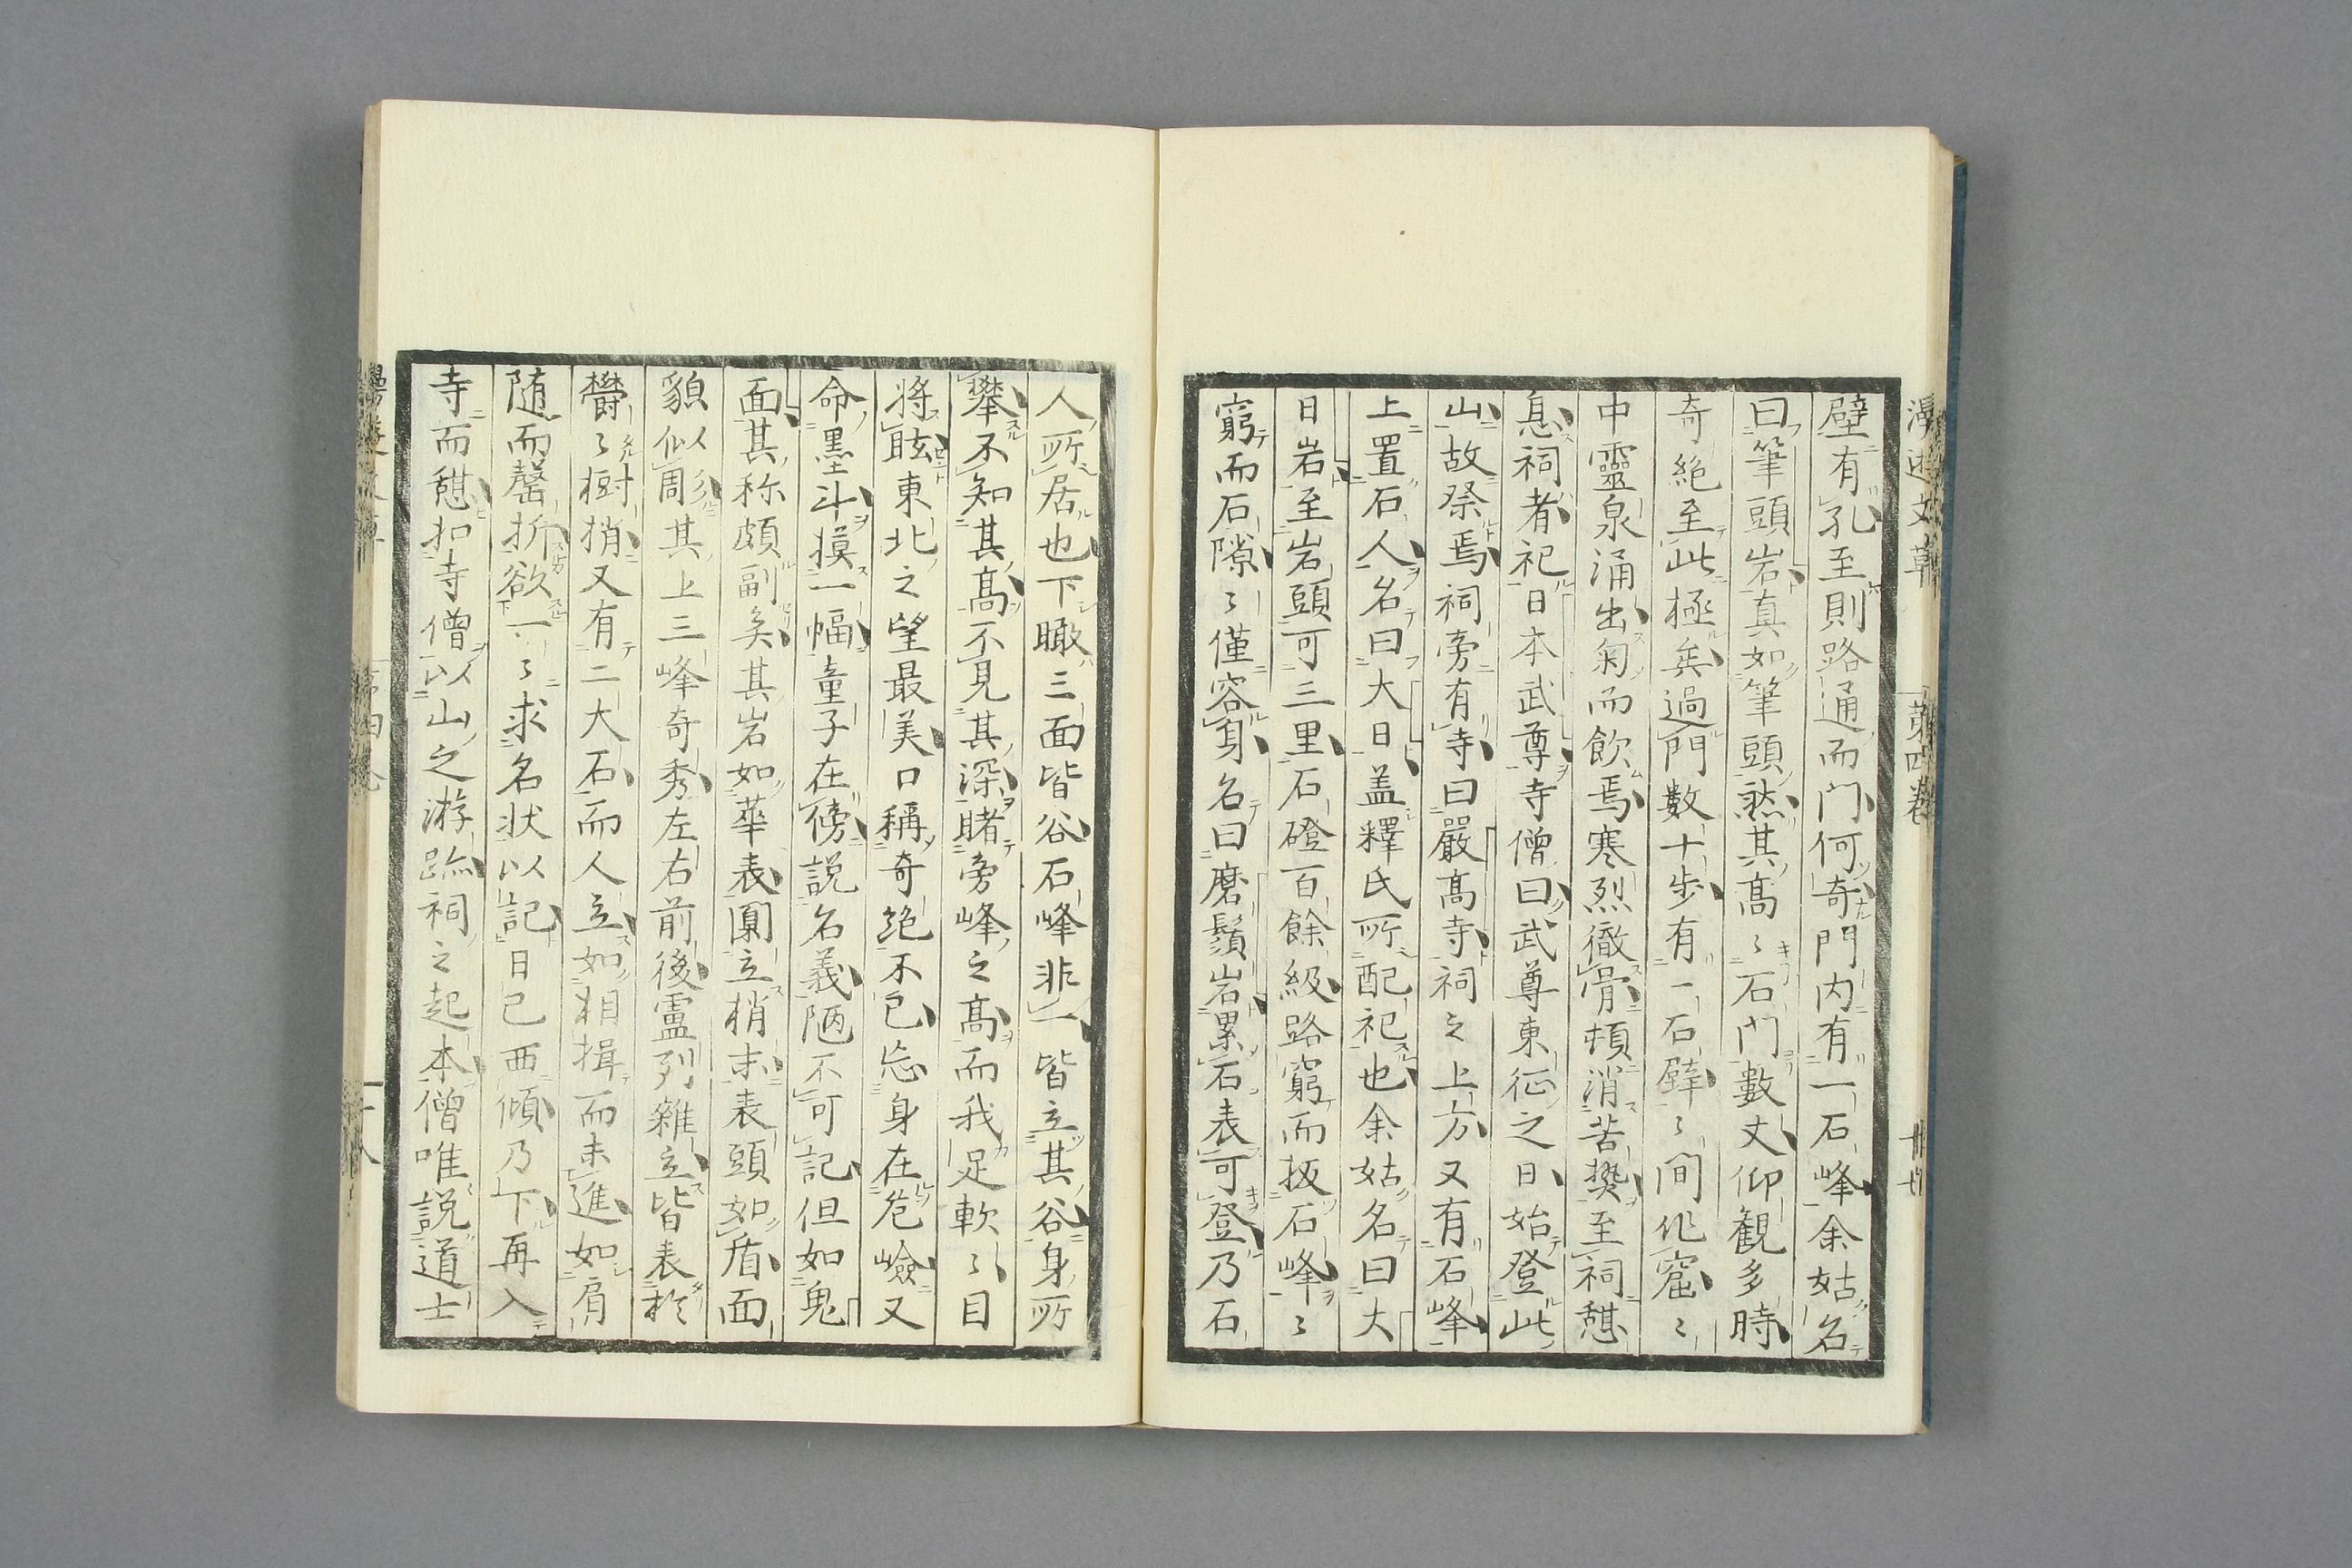 壁有孔至則路通而門何奇門内有一石峰余姑名
曰筆頭岩真如筆頭然其髙々石門數丈仰観多時
奇絶至此極矣過門數十歩有一石礔々間作窟々
中靈泉涌出匊而飲焉寒烈徹骨頓消苦𤍠至祠憩
息祠者祀日本武尊寺僧曰武尊東征之日始登此
山故祭焉祠旁有寺曰嚴髙寺祠之上方又有石峰
上置石人名曰大日盖釋氏所配祀也余姑名曰大
日岩至岩頭可三里石磴百餘級路窮而扳石峰々
窮而石隙々僅容身名曰磨鬚岩累石表可登乃石
人所居也下瞰三面皆谷石峰非一皆立其谷身所
攀不知其髙不見其深睹旁峰之髙而我足軟々目
将眩東北之望最美口稱奇絶不已忘身在危嶮又
命墨斗摸一幅童子在傍説名義陋不可記但如鬼
面其称頗副矣其岩如華表圓立梢末表頭如盾面
貌似周其上三峰奇秀左右前後臚列雜立皆表於
欝々樹梢又有二大石而人立如相揖而未進如肩
随而罄折欲一々求名状以記日已西傾乃下再入
寺而憩扣寺僧以山之游跡祠之起本僧唯説道士
漫遊文草
第四巻